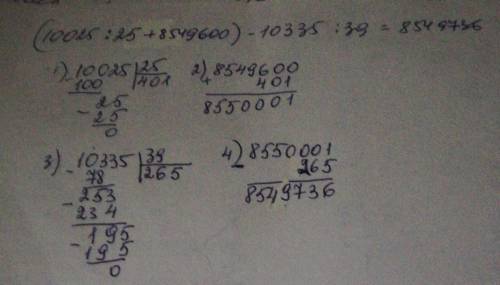 (10025 : 25 + 8549600) - 10335 : 39 = 8549736
1) 10025 | 25
100 | 401
- 25
25
0
2) + 8549600
401
8550001
3) - 10335 | 39
78 | 265
- 253
234
- 195
195
0
4) - 8550001
265
8549736